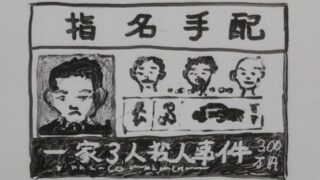 指名手配
一家3人殺人事件
300
万円